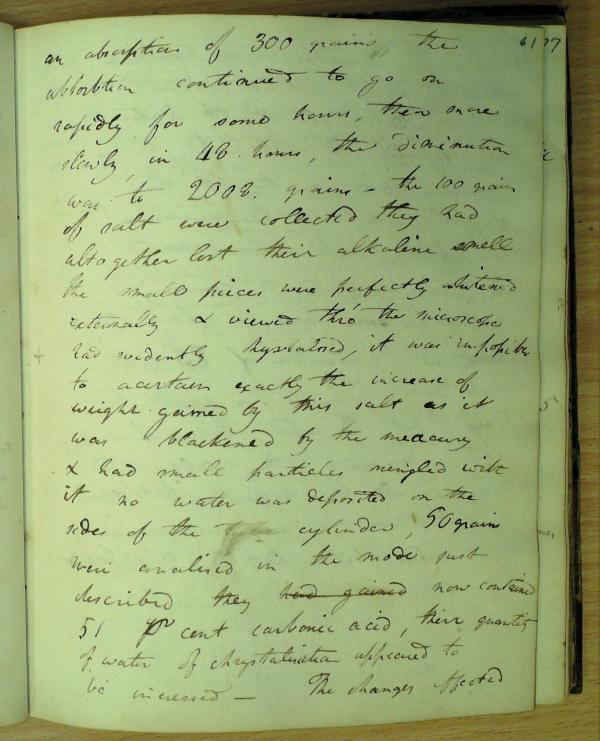 an absorption of 300 grains, the
absorbtion continued to go on
rapidly for some hours, then more
slowly, in 48 hours, the diminution
was to 2008. grains - the 100 grain
of salt were collected they had
altogether lost their alkaline smell
the small pieces were perfectly whitened
externally & viewed thro the microscope
had evidently chrystalised, it was impossible
to acertain exactly the increase of
weight gained by this salt as it
was blackened by the mercury
& had small particles mingled with
it no water was deposited on the
sides of the tube cylinder, 50 grains
were analised in the mode just
described they had gained now contained
51 pr cent carbonic acid, their quantity
of water of chrystalisation appeared to
be increased — The changes effected